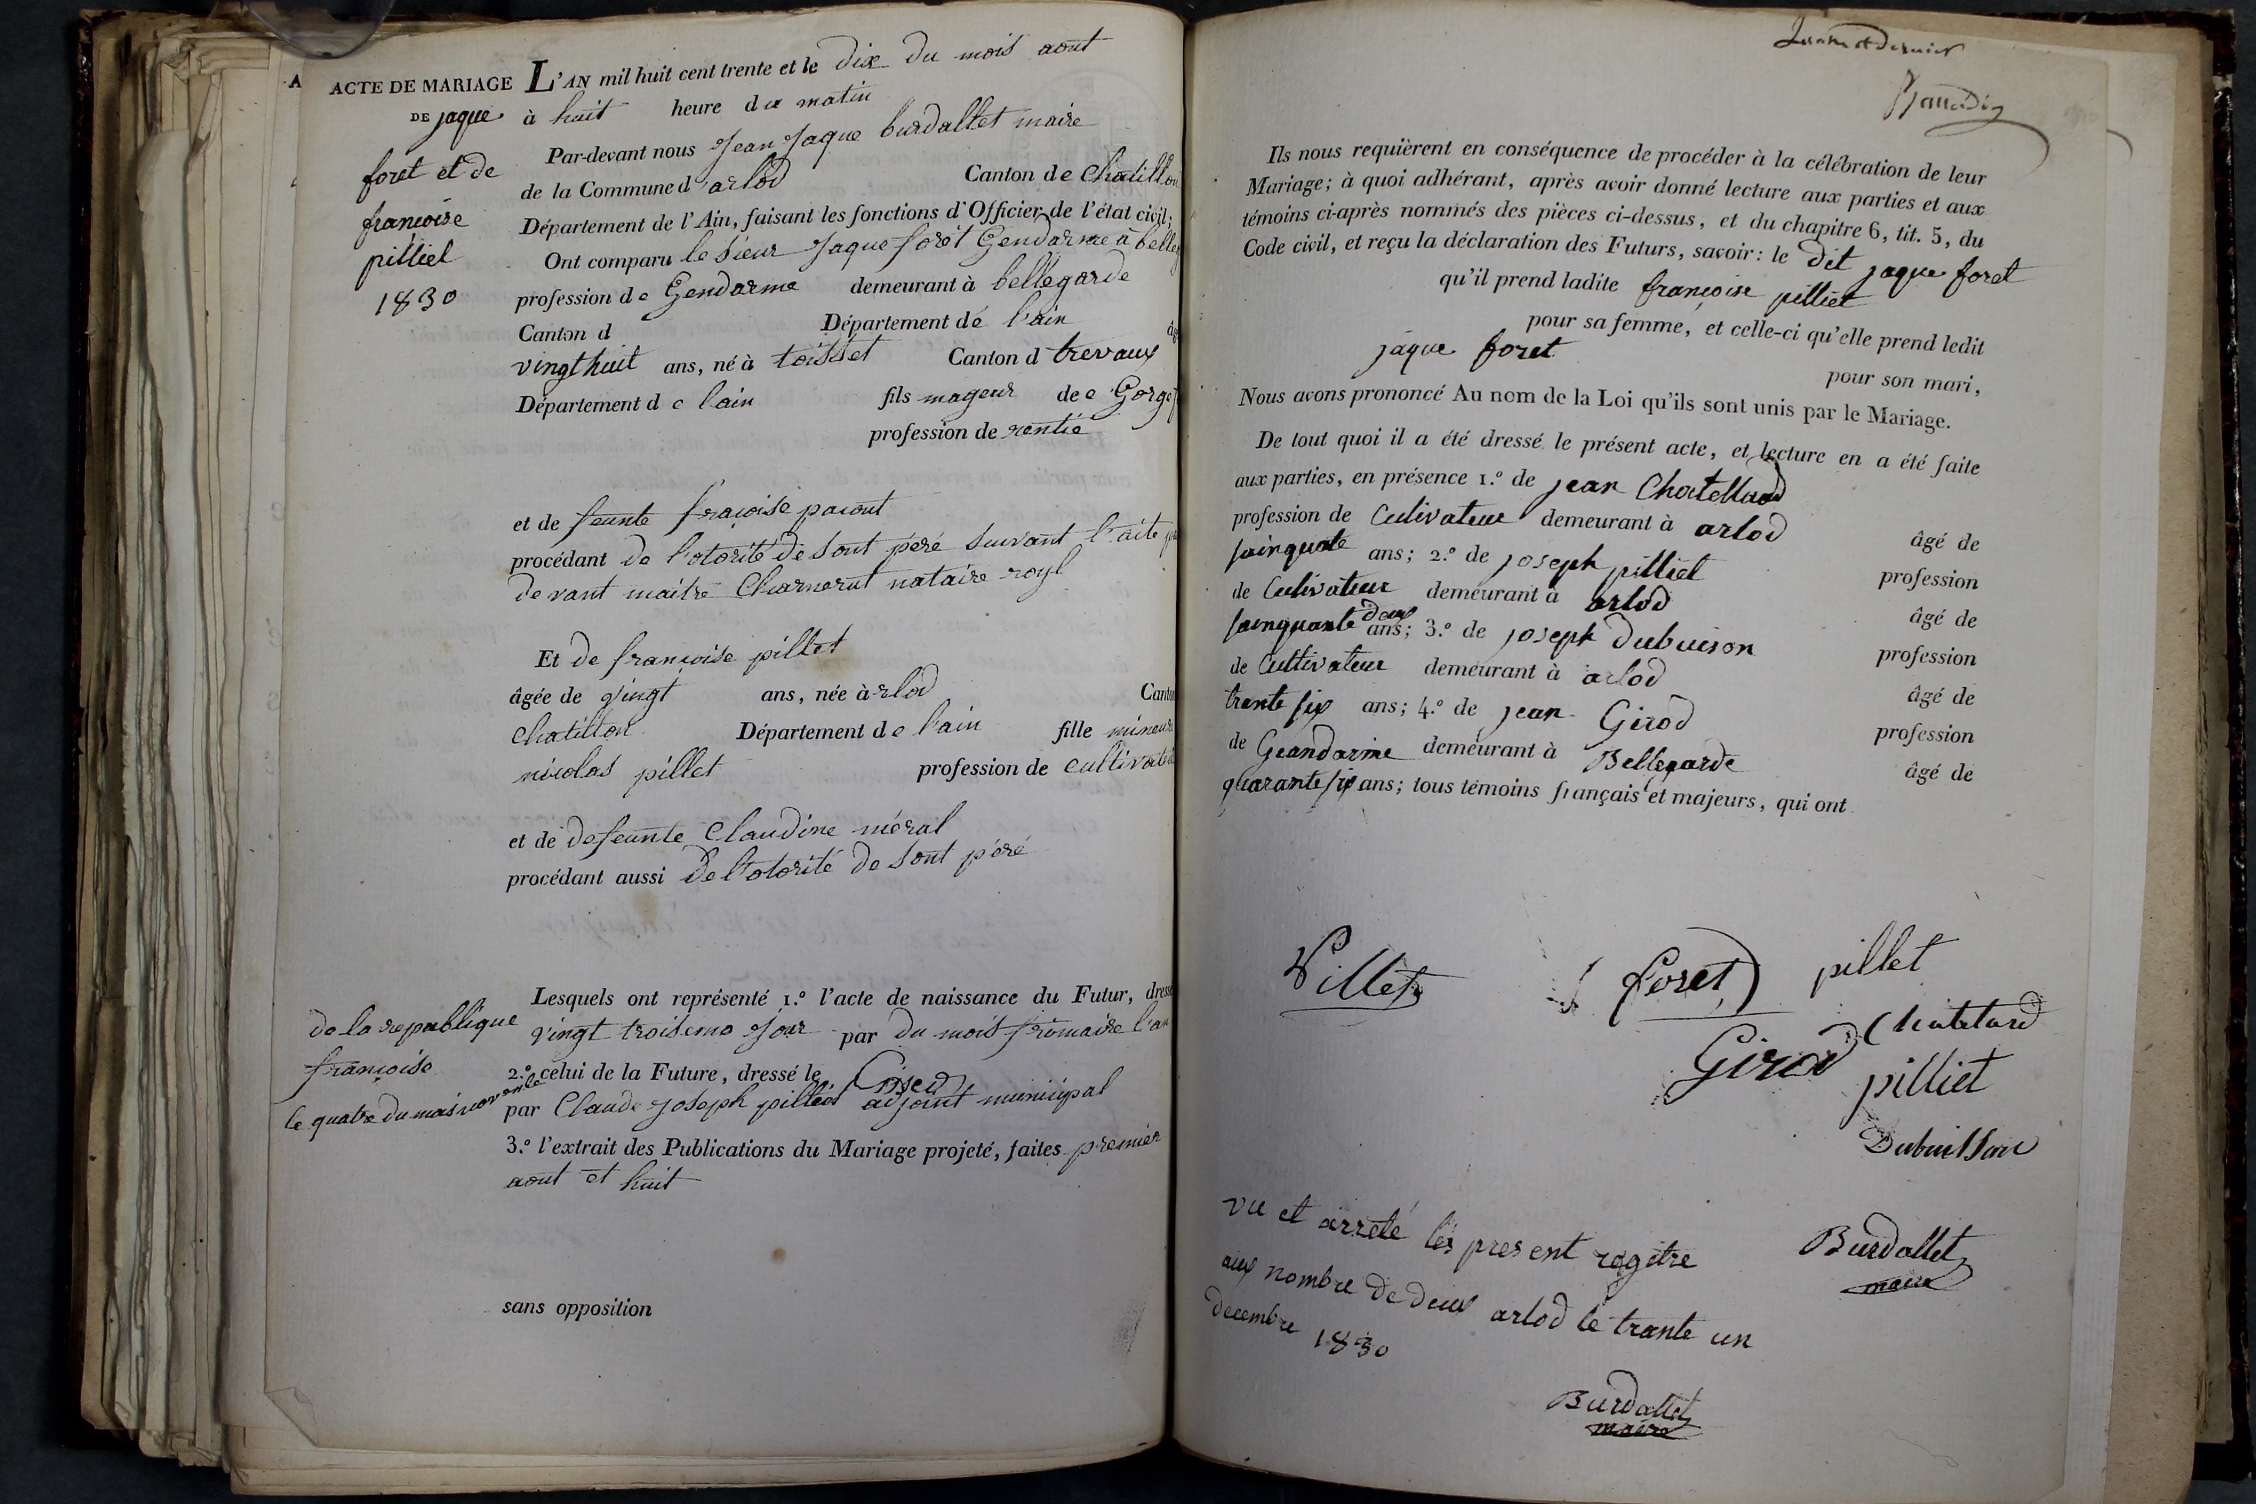 ACTE DE MARIAGE
DE jaque
foret et de
françoise
pilliel
1830
L'AN mil huit cent trente et le dix du mois aout
à huit heure du matin
Par-devant nous Jean Jaque burdallet maire
de la Commune d'arlod Canton de Chatillon
Département de l'Ain, faisant les fonctions d'Officier de l'état civil;
Ont comparu le Sieur Jaque forêt Gendarme à belleg
profession de Gendarme demeurant à bellegarde
Canton d Département de l'ain
vingt huit ans, né à toisset Canton d trevaux
Département de l'ain fils mageur de
profession de rentié
et de feunte fraçoise pacout
procédant de l'otorité de sont péré suivant l'aite
devant maitre Charnerat nataire royl
Et de françoise pillet
âgée de vingt ans, née à arlod Canton
Chatillon Département de l'ain fille mineure
nicolas pillet profession de cultivateu
et de defeunte Claudine méral
procédant aussi de l'otorité de sont péré
Lesquels ont représenté 1.º l'acte de naissance du Futur, dressé
de la republique
françoise
vingt troiseme jour par du mois fromaire l'an
2.º celui de la Future, dressé le
le quatre du mois novenbe
par Claude joseph pilliet adjoint municipal
3.º l'extrait des Publications du Mariage projeté, faites premier
aout et huit
sans opposition
Ils nous requièrent en conséquence de procéder à la célébration de leur
Mariage; à quoi adhérant, après avoir donné lecture aux parties et aux
témoins ci-après nommés des pièces ci-dessus, et du chapitre 6, tit. 5, du
Code civil, et reçu la déclaration des Futurs, savoir: le dit jaque foret
qu'il prend ladite françoise pilliet
pour sa femme, et celle-ci qu'elle prend ledit
jaque foret pour son mari,
Nous avons prononcé Au nom de la Loi qu'ils sont unis par le Mariage.
De tout quoi il a été dressé le présent acte, et lecture en a été faite
aux parties, en présence 1.º de jean Chatelland
profession de Cultivateur demeurant à arlod âgé de
sainquante ans; 2.º de joseph pilliet profession
de Cultivateur demeurant à arlod âgé de
sainquante deux ans; 3.º de joseph dubuison profession
de Cultivateur demeurant à arlod âgé de
trente six ans; 4.º de jean Girod profession
de Geandarme demeurant à Bellegarde âgé de
quarante six ans; tous témoins français et majeurs, qui ont
Pillet
foret
pillet
Chatelard
Girod
pilliet
Dubuisson
Burdallet
maire
vu et arreté les present regitre
aux nombre de deux arlod le trante un
decembre 1830
Burdallet
maire